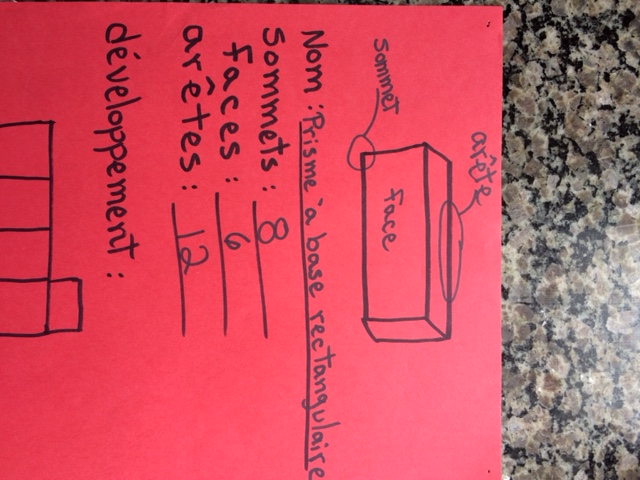 arête
sommet
face
Nom : Prisme à base rectangulaire
sommets : 8
faces : 6
arêtes : 12
développement :